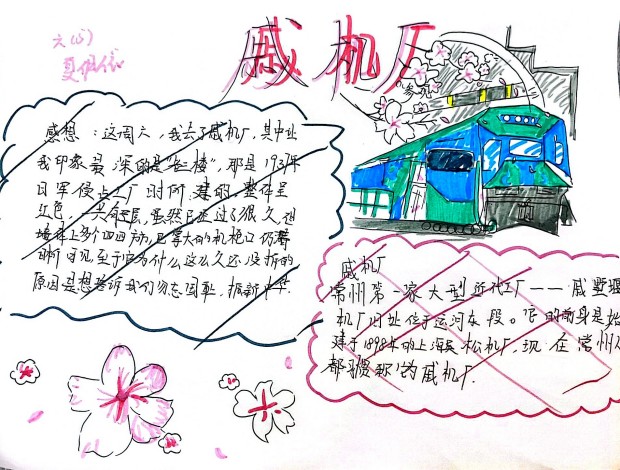 六(5)
戚机厂
感想：这周六，我去了戚机厂，其中让
我印象最深的是“红楼”，那是1937年
日军侵占工厂时所建的，整体呈
红色，一共三层，虽然已经过了很久，但
墙体上多个凹凸动，巨拿大的机枪口仍
晰可见，至于它为什么这么久还没拆的
原因是想告诉我们勿忘国耻，振新中华
戚机厂
常州第一家大型近代工厂——戚墅堰
机厂旧址位于运河东段。它的前身是始
建于1898年的上海吴松机厂，现在常州人
都习惯称的戚机厂.